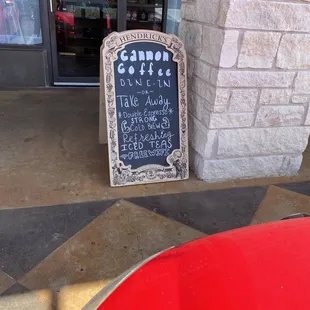 HENDRICK'S
Cannon
Coffee
DINE-IN
-OR-
TAKE AWAY
Double Espresso
STRONG
Cold Brew
Refreshing
ICED TEAS